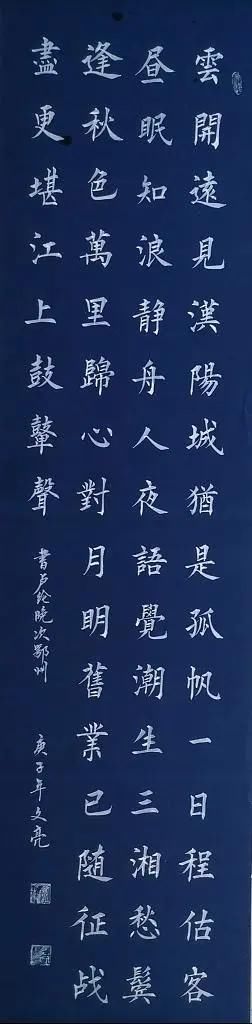 雲開遠見漢陽城猶是孤帆一日程估客
昼眠知浪静舟人夜語覺潮生三湘愁鬓
逢秋色萬里歸心對月明舊業已随征战
盡更堪江上鼓鼙聲
書卢纶晚次鄂州
庚子年文亮